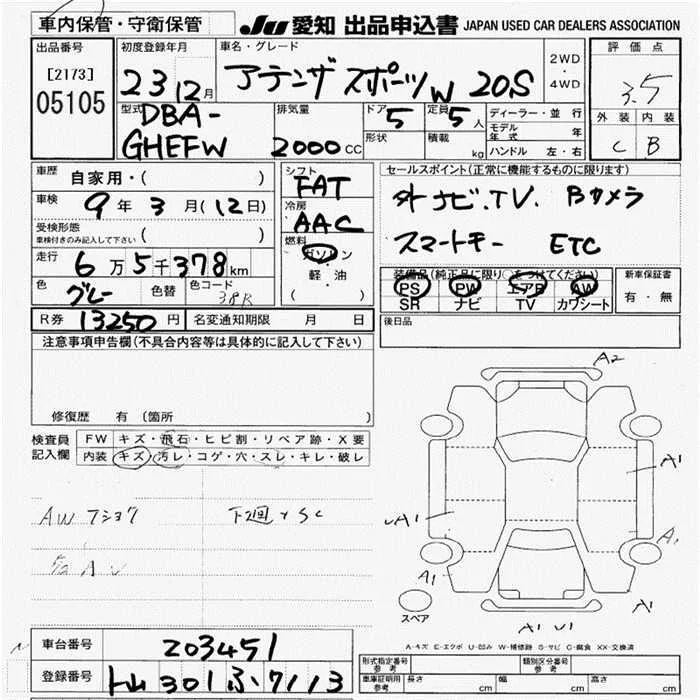 車内保管・守衛保管
JU 愛知 出品申込書 JAPAN USED CAR DEALERS ASSOCIATION
出品番号
[2173]
05105
初度登録年月
23 12月
車名・グレード
アテンザ スポーツW 20S
2WD
・
4WD
評価点
3.5
外装 内装
C B
型式
DBA-
GHEFW
排気量
2000cc
ドア
5
形状
定員
5人
積載
kg
ディーラー・並行
モデル年式 年
ハンドル 左・右
車歴 自家用・( )
車検 9年 3月(12日)
受検形態
車検付きのみ記入して下さい ( )
走行 6万5千378km
色 グレー 色替 色コード 38R
シフト
FAT
冷房
AAC
燃料
ガソリン
軽・油
( )
セールスポイント(正常に機能するものに限ります)
外ナビ.TV. Bカメラ
スマートキー ETC
装備品(純正品に限り○をつけてください)
PS PW エアB AW
SR ナビ TV カワシート
新車保証書
有・無
R券 13250円 名変通知期限 月 日
後日品
注意事項申告欄(不具合内容等は具体的に記入して下さい)
修復歴 有(箇所 )
検査員
記入欄
FW キズ・飛石・ヒビ割・リペア跡・X要
内装 キズ・汚レ・コゲ・穴・スレ・キレ・破レ
AW フショク 下廻りSC
A2
A1
A1
A1
A1
A1 U1
スペア
A-キズ E-エクボ U-凹み W-補修跡 S-サビ C-腐食 XX-交換済
車台番号 203451
登録番号 301 ふ 7113
形式指定番号
参考
類別区分番号
参考
車庫証明用
参考
長さ cm 幅 cm 高さ cm